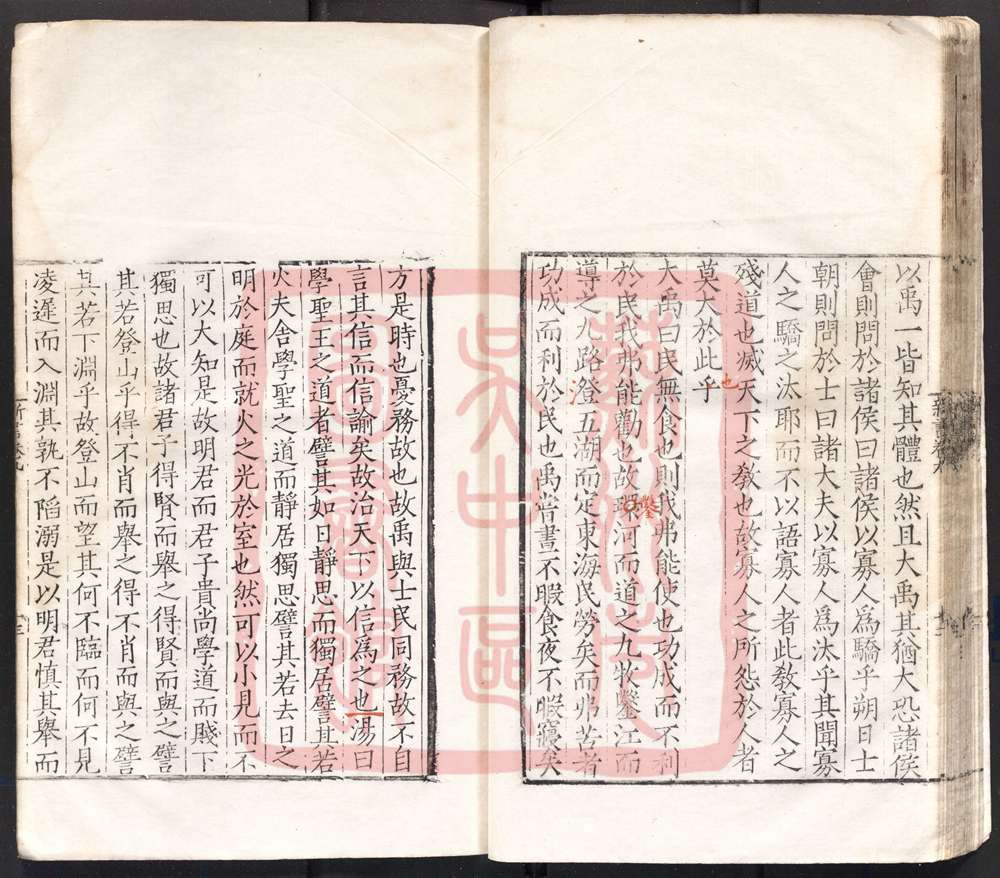 以禹一皆知其體也然且大禹其猶大恐諸侯
會則問於諸侯曰諸侯以寡人爲驕乎朔日士
朝則問於士曰諸大夫以寡人爲汰乎其聞寡
人之驕之汰耶而不以語寡人者此敎寡人之
殘道也滅天下之敎也故寡人之所怨於人者
莫大於此乎
也
大禹曰民無食也則我弗能使也功成而不利
於民我弗能勸也故環河而道之九牧鑿江而
鬟
導之九路澄五湖而定東海民勞矣而弗苦者
功成而利於民也禹嘗晝不暇食夜不暇寢矣
方是時也憂務故也故禹與士民同務故不自
言其信而信諭矣故治天下以信爲之也湯曰
學聖王之道者譬其如日靜思而獨居譬其若
火夫舍學聖之道而靜居獨思譬其若去日之
明於庭而就火之光於室也然可以小見而不
可以大知是故明君而君子貴尚學道而賤下
獨思也故諸君子得賢而舉之得賢而與之譬
其若登山乎得不肖而舉之得不肖而與之譬
其若下淵乎故登山而望其何不臨而何不見
凌遲而入淵其孰不陷溺是以明君慎其舉而
新書卷九
蘇州范
吳中區
圖書館